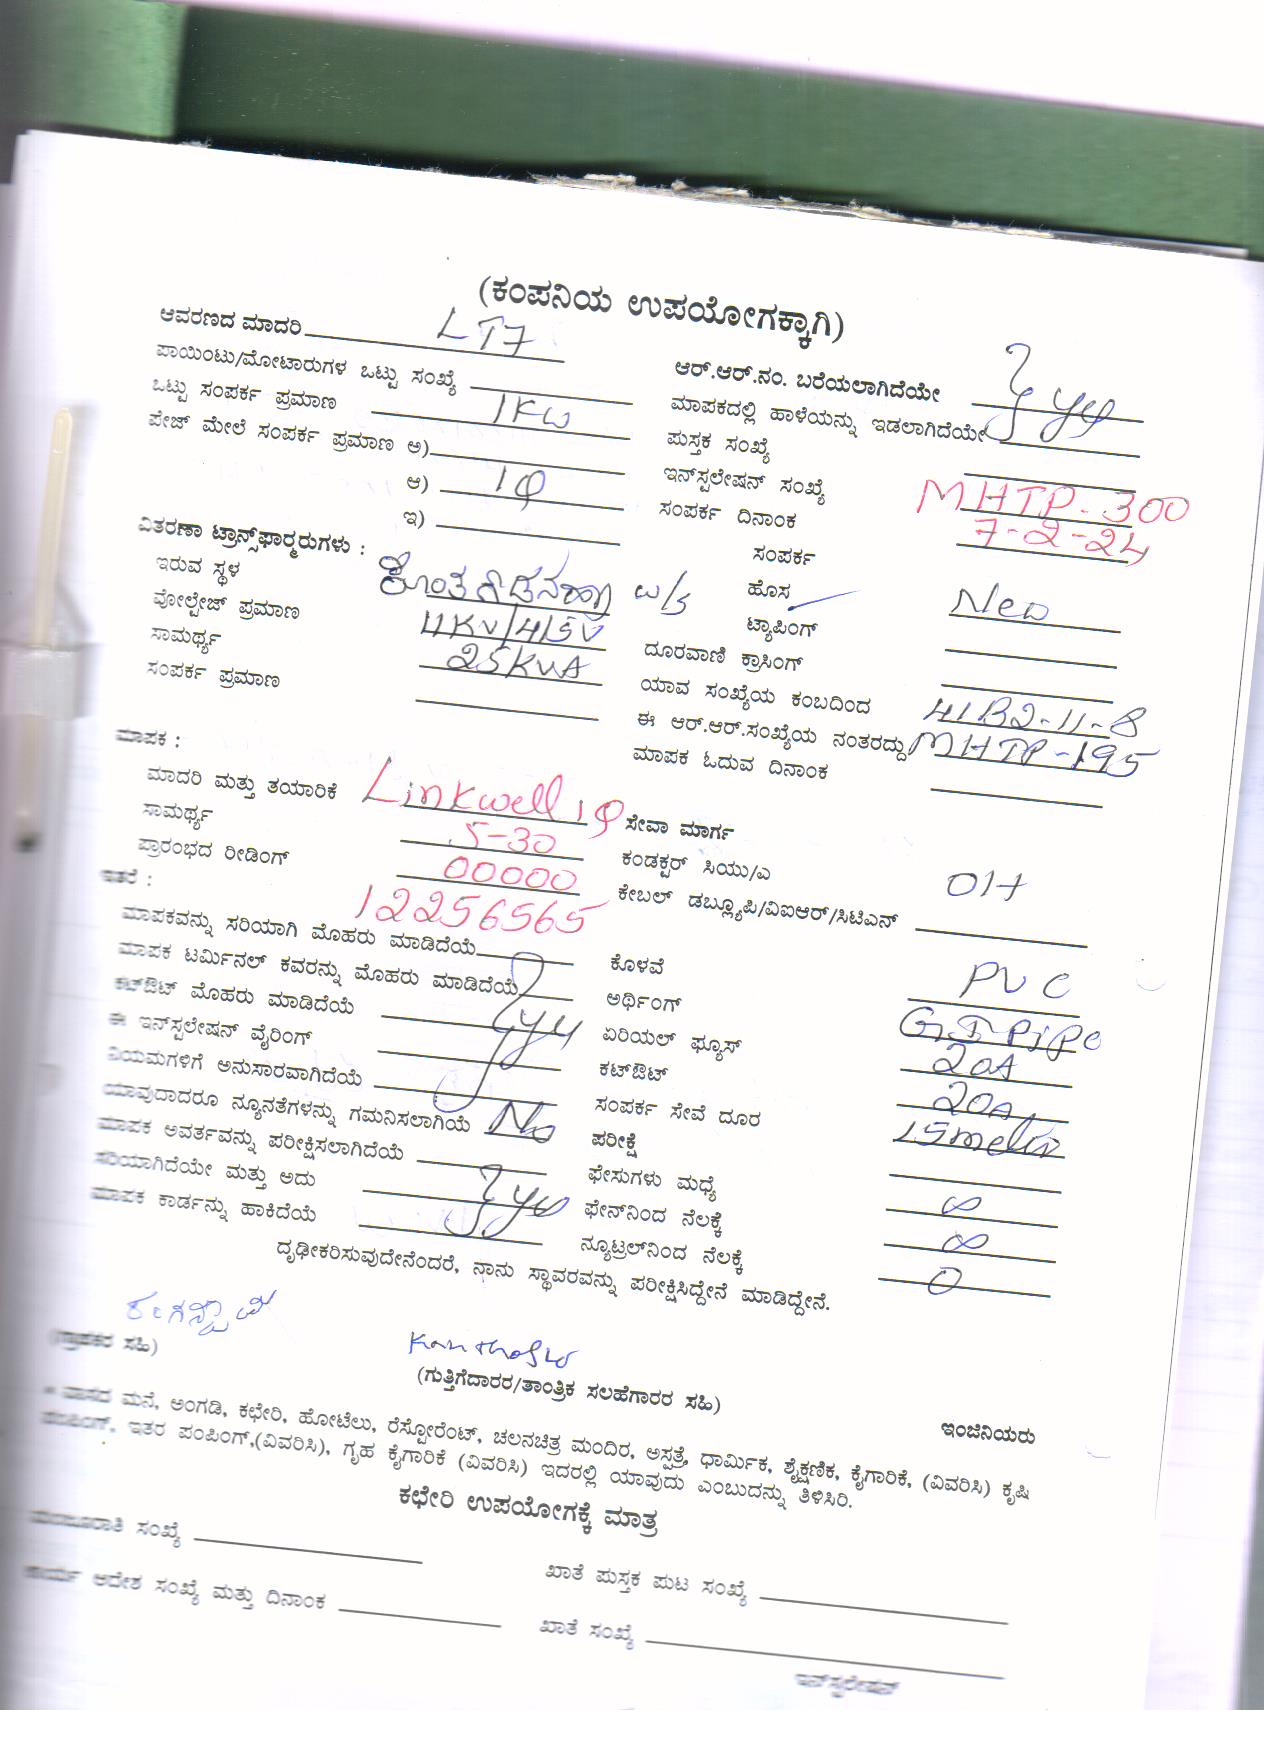 (ಕಂಪನಿಯ ಉಪಯೋಗಕ್ಕಾಗಿ)
ಆವರಣದ ಮಾದರಿ LT7
ಪಾಯಿಂಟು/ಮೋಟಾರುಗಳ ಒಟ್ಟು ಸಂಖ್ಯೆ
ಒಟ್ಟು ಸಂಪರ್ಕ ಪ್ರಮಾಣ 1KW
ಪೇಜ್ ಮೇಲೆ ಸಂಪರ್ಕ ಪ್ರಮಾಣ ಅ)
ಆ) 1φ
ಇ)
ವಿತರಣಾ ಟ್ರಾನ್ಸ್‌ಫಾರ್‍ಮರುಗಳು :
ಇರುವ ಸ್ಥಳ w/s
ವೋಲ್ಟೇಜ್ ಪ್ರಮಾಣ 11KV/415V
ಸಾಮರ್ಥ್ಯ 25KVA
ಸಂಪರ್ಕ ಪ್ರಮಾಣ
ಮಾಪಕ :
ಮಾದರಿ ಮತ್ತು ತಯಾರಿಕೆ Linkwell 1φ
ಸಾಮರ್ಥ್ಯ 5-30
ಪ್ರಾರಂಭದ ರೀಡಿಂಗ್ 00000
ಇತರೆ : 12256565
ಮಾಪಕವನ್ನು ಸರಿಯಾಗಿ ಮೊಹರು ಮಾಡಿದೆಯೆ
ಮಾಪಕ ಟರ್ಮಿನಲ್ ಕವರನ್ನು ಮೊಹರು ಮಾಡಿದೆಯೆ
ಕಟ್‌ಔಟ್ ಮೊಹರು ಮಾಡಿದೆಯೆ
ಈ ಇನ್‌ಸ್ಟಲೇಷನ್ ವೈರಿಂಗ್
ನಿಯಮಗಳಿಗೆ ಅನುಸಾರವಾಗಿದೆಯೆ
ಯಾವುದಾದರೂ ನ್ಯೂನತೆಗಳನ್ನು ಗಮನಿಸಲಾಗಿಯೆ No
ಮಾಪಕ ಅವರ್ತವನ್ನು ಪರೀಕ್ಷಿಸಲಾಗಿದೆಯೆ
ಸರಿಯಾಗಿದೆಯೇ ಮತ್ತು ಅದು
ಮಾಪಕ ಕಾರ್ಡನ್ನು ಹಾಕಿದೆಯೆ
ಆರ್.ಆರ್.ನಂ. ಬರೆಯಲಾಗಿದೆಯೇ
ಮಾಪಕದಲ್ಲಿ ಹಾಳೆಯನ್ನು ಇಡಲಾಗಿದೆಯೇ
ಪುಸ್ತಕ ಸಂಖ್ಯೆ
ಇನ್‌ಸ್ಟಲೇಷನ್ ಸಂಖ್ಯೆ MHTP-300
ಸಂಪರ್ಕ ದಿನಾಂಕ 7-2-24
ಸಂಪರ್ಕ
ಹೊಸ New
ಟ್ಯಾಪಿಂಗ್
ದೂರವಾಣಿ ಕ್ರಾಸಿಂಗ್
ಯಾವ ಸಂಖ್ಯೆಯ ಕಂಬದಿಂದ 41B2-11-8
ಈ ಆರ್.ಆರ್.ಸಂಖ್ಯೆಯ ನಂತರದ್ದು MHTP-195
ಮಾಪಕ ಓದುವ ದಿನಾಂಕ
ಸೇವಾ ಮಾರ್ಗ
ಕಂಡಕ್ಟರ್ ಸಿಯು/ಎ OH
ಕೇಬಲ್ ಡಬ್ಲ್ಯೂಪಿ/ವಿಐಆರ್/ಸಿಟಿಎನ್
ಕೊಳವೆ PVC
ಅರ್ಥಿಂಗ್ G.I Pipe
ಏರಿಯಲ್ ಫ್ಯೂಸ್ 20A
ಕಟ್‌ಔಟ್ 20A
ಸಂಪರ್ಕ ಸೇವೆ ದೂರ 15meter
ಪರೀಕ್ಷೆ
ಫೇಸುಗಳು ಮಧ್ಯೆ ∞
ಫೇನ್‌ನಿಂದ ನೆಲಕ್ಕೆ ∞
ನ್ಯೂಟ್ರಲ್‌ನಿಂದ ನೆಲಕ್ಕೆ 0
ದೃಢೀಕರಿಸುವುದೇನೆಂದರೆ, ನಾನು ಸ್ಥಾವರವನ್ನು ಪರೀಕ್ಷಿಸಿದ್ದೇನೆ ಮಾಡಿದ್ದೇನೆ.
(ಗ್ರಾಹಕರ ಸಹಿ)
(ಗುತ್ತಿಗೆದಾರರ/ತಾಂತ್ರಿಕ ಸಲಹೆಗಾರರ ಸಹಿ)
ಇಂಜಿನಿಯರು
* ವಾಸದ ಮನೆ, ಅಂಗಡಿ, ಕಛೇರಿ, ಹೋಟೆಲು, ರೆಸ್ಟೋರೆಂಟ್, ಚಲನಚಿತ್ರ ಮಂದಿರ, ಅಸ್ಪತ್ರೆ, ಧಾರ್ಮಿಕ, ಶೈಕ್ಷಣಿಕ, ಕೈಗಾರಿಕೆ, (ವಿವರಿಸಿ) ಕೃಷಿ
ಪಂಪಿಂಗ್, ಇತರ ಪಂಪಿಂಗ್,(ವಿವರಿಸಿ), ಗೃಹ ಕೈಗಾರಿಕೆ (ವಿವರಿಸಿ) ಇದರಲ್ಲಿ ಯಾವುದು ಎಂಬುದನ್ನು ತಿಳಿಸಿರಿ.
ಕಛೇರಿ ಉಪಯೋಗಕ್ಕೆ ಮಾತ್ರ
ಮಂಜೂರಾತಿ ಸಂಖ್ಯೆ
ಖಾತೆ ಪುಸ್ತಕ ಪುಟ ಸಂಖ್ಯೆ
ಕಾರ್ಯ ಆದೇಶ ಸಂಖ್ಯೆ ಮತ್ತು ದಿನಾಂಕ
ಖಾತೆ ಸಂಖ್ಯೆ
ಇನ್‌ಸ್ಟಲೇಷನ್